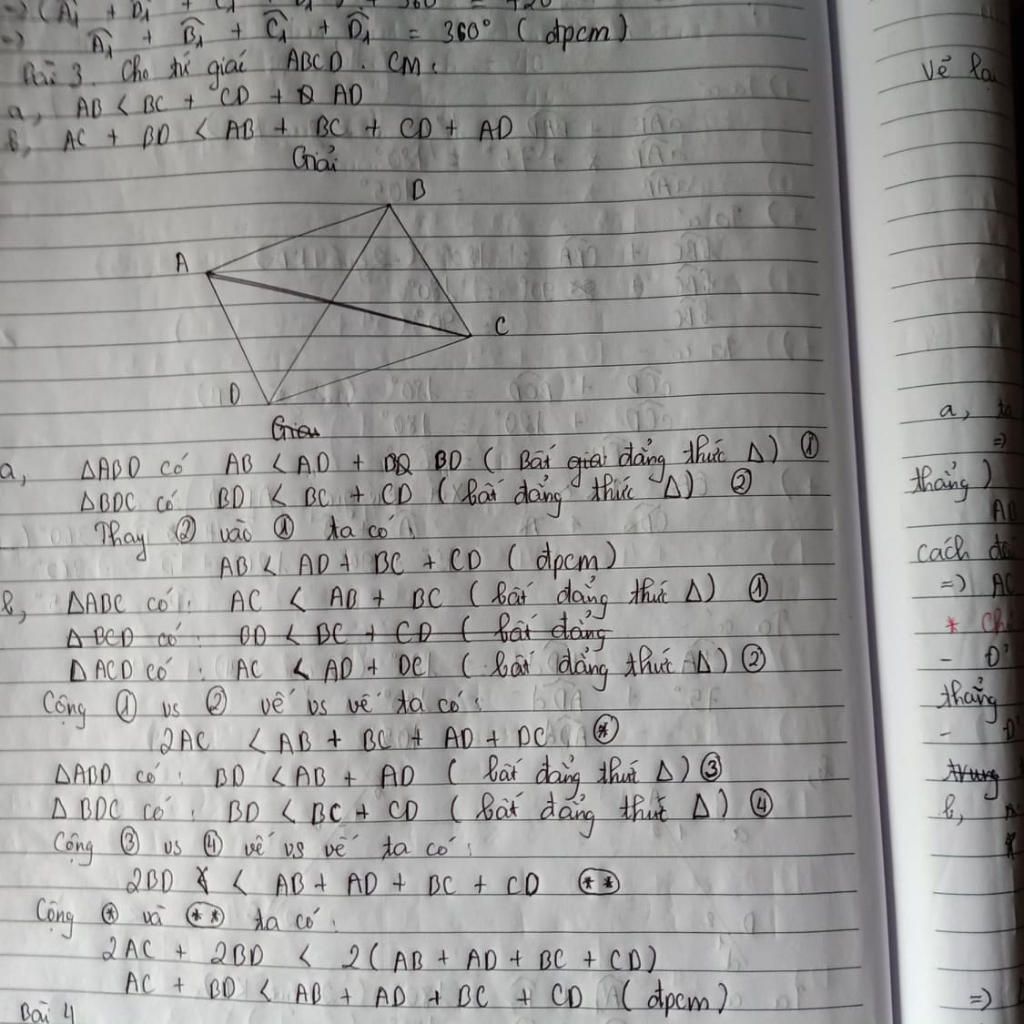 Â₁ + B̂₁ + Ĉ₁ + D̂₁ = 360° (đpcm)
Bài 3. Cho tứ giác ABCD. CM:
a, AB < BC + CD + AD
b, AC + BD < AB + BC + CD + AD
Giải
B
A
C
D
a, ΔABD có AB < AD + BD (Bất đẳng thức Δ) ①
ΔBDC có BD < BC + CD (bất đẳng thức Δ) ②
Thay ② vào ① ta có:
AB < AD + BC + CD (đpcm)
b, ΔABC có: AC < AB + BC (bất đẳng thức Δ) ①
ΔBCD có: BD < BC + CD (bất đẳng
ΔACD có: AC < AD + DC (bất đẳng thức Δ) ②
Cộng ① vs ② vế vs vế ta có:
2AC < AB + BC + AD + DC (*)
ΔABD có: BD < AB + AD (bất đẳng thức Δ) ③
ΔBDC có: BD < BC + CD (bất đẳng thức Δ) ④
Cộng ③ vs ④ vế vs vế ta có:
2BD < AB + AD + BC + CD (**)
Cộng (*) và (**) ta có:
2AC + 2BD < 2(AB + AD + BC + CD)
AC + BD < AB + AD + BC + CD (đpcm)
Bài 4
Vẽ
a,
=>
thẳng)
cách
=> AC
*
-
thẳng
-
trung
b,
=>